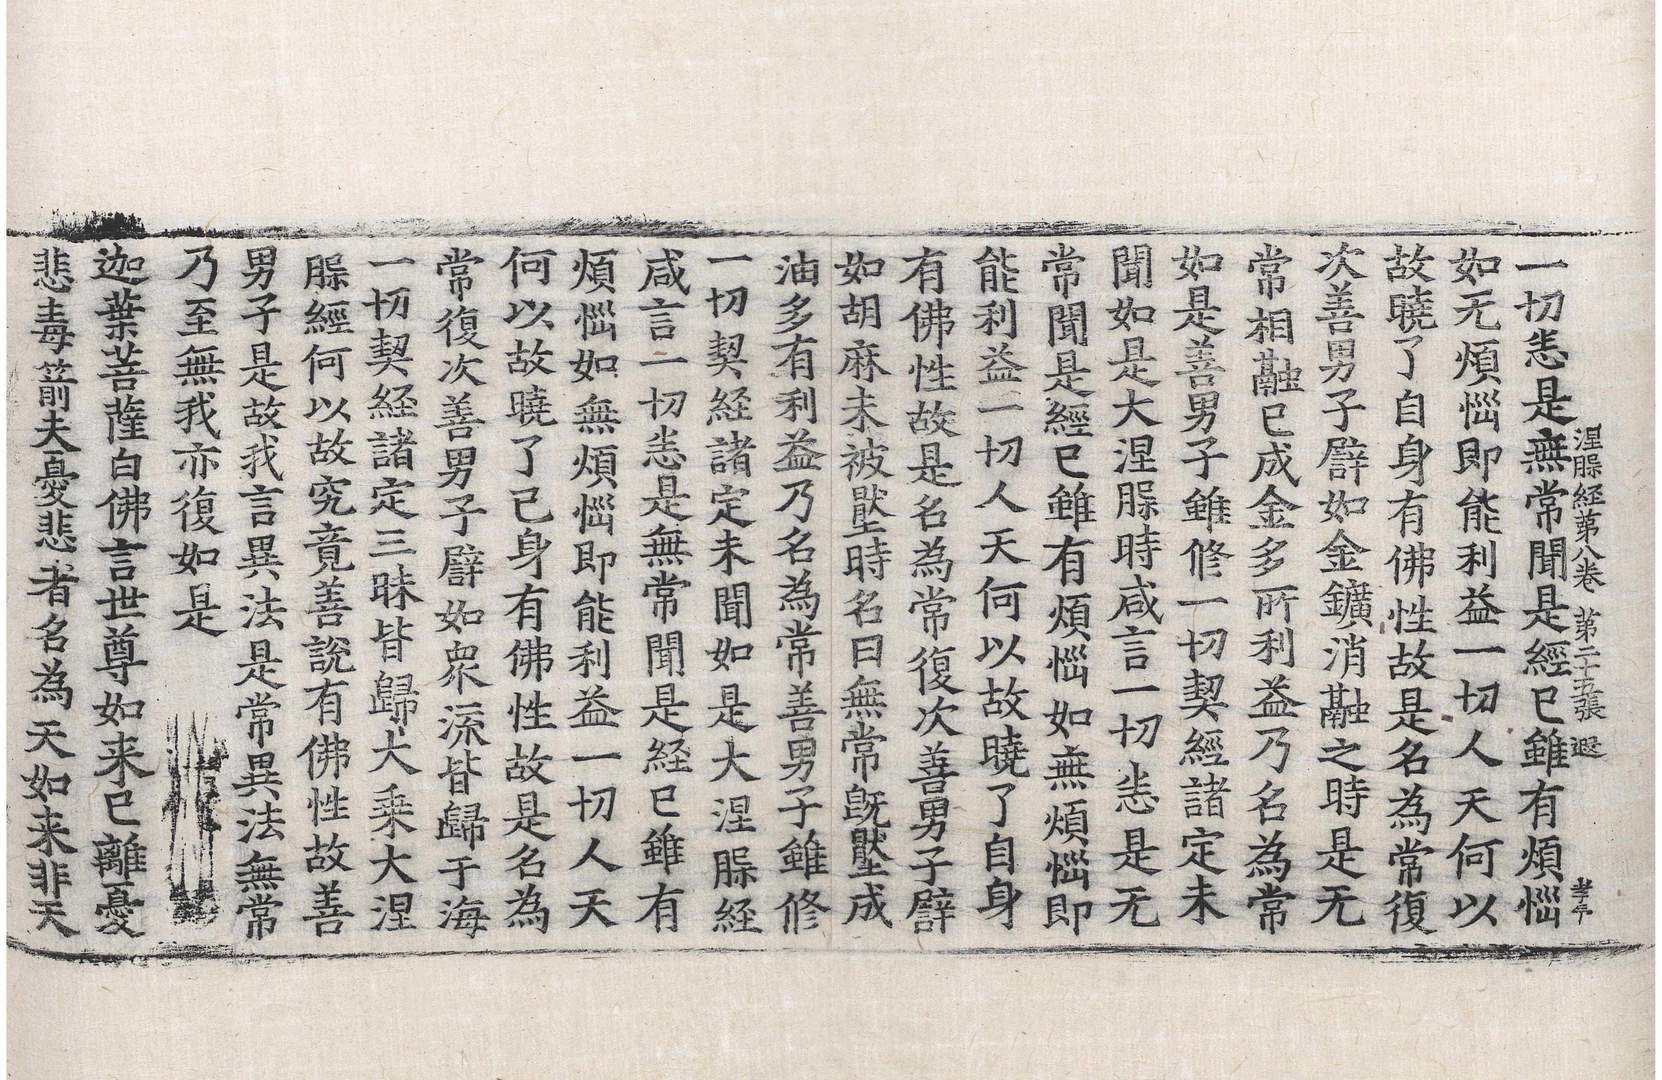 涅槃経第八卷 第二十五張 遐 孝平
一切悉是無常聞是經已雖有煩惱
如无煩惱即能利益一切人天何以
故曉了自身有佛性故是名為常復
次善男子譬如金鑛消融之時是无
常相融已成金多所利益乃名為常
如是善男子雖修一切契經諸定未
聞如是大涅槃時咸言一切悉是无
常聞是經已雖有煩惱如無煩惱即
能利益一切人天何以故曉了自身
有佛性故是名為常復次善男子譬
如胡麻未被壓時名曰無常既壓成
油多有利益乃名為常善男子雖修
一切契經諸定未聞如是大涅槃経
咸言一切悉是無常聞是経已雖有
煩惱如無煩惱即能利益一切人天
何以故曉了已身有佛性故是名為
常復次善男子譬如衆流皆歸于海
一切契経諸定三昧皆歸大乗大涅
槃經何以故究竟善說有佛性故善
男子是故我言異法是常異法無常
乃至無我亦復如是
迦葉菩薩白佛言世尊如来已離憂
悲毒箭夫憂悲者名為天如来非天